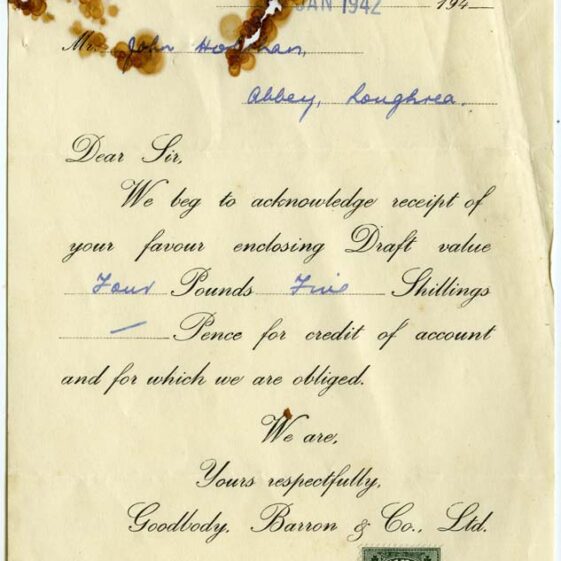 JAN 1942 194
Mr. John
Abbey, Loughrea.
Dear Sir,
We beg to acknowledge receipt of
your favour enclosing Draft value
Four Pounds Five Shillings
— Pence for credit of account
and for which we are obliged.
We are,
Yours respectfully,
Goodbody, Barron & Co., Ltd.